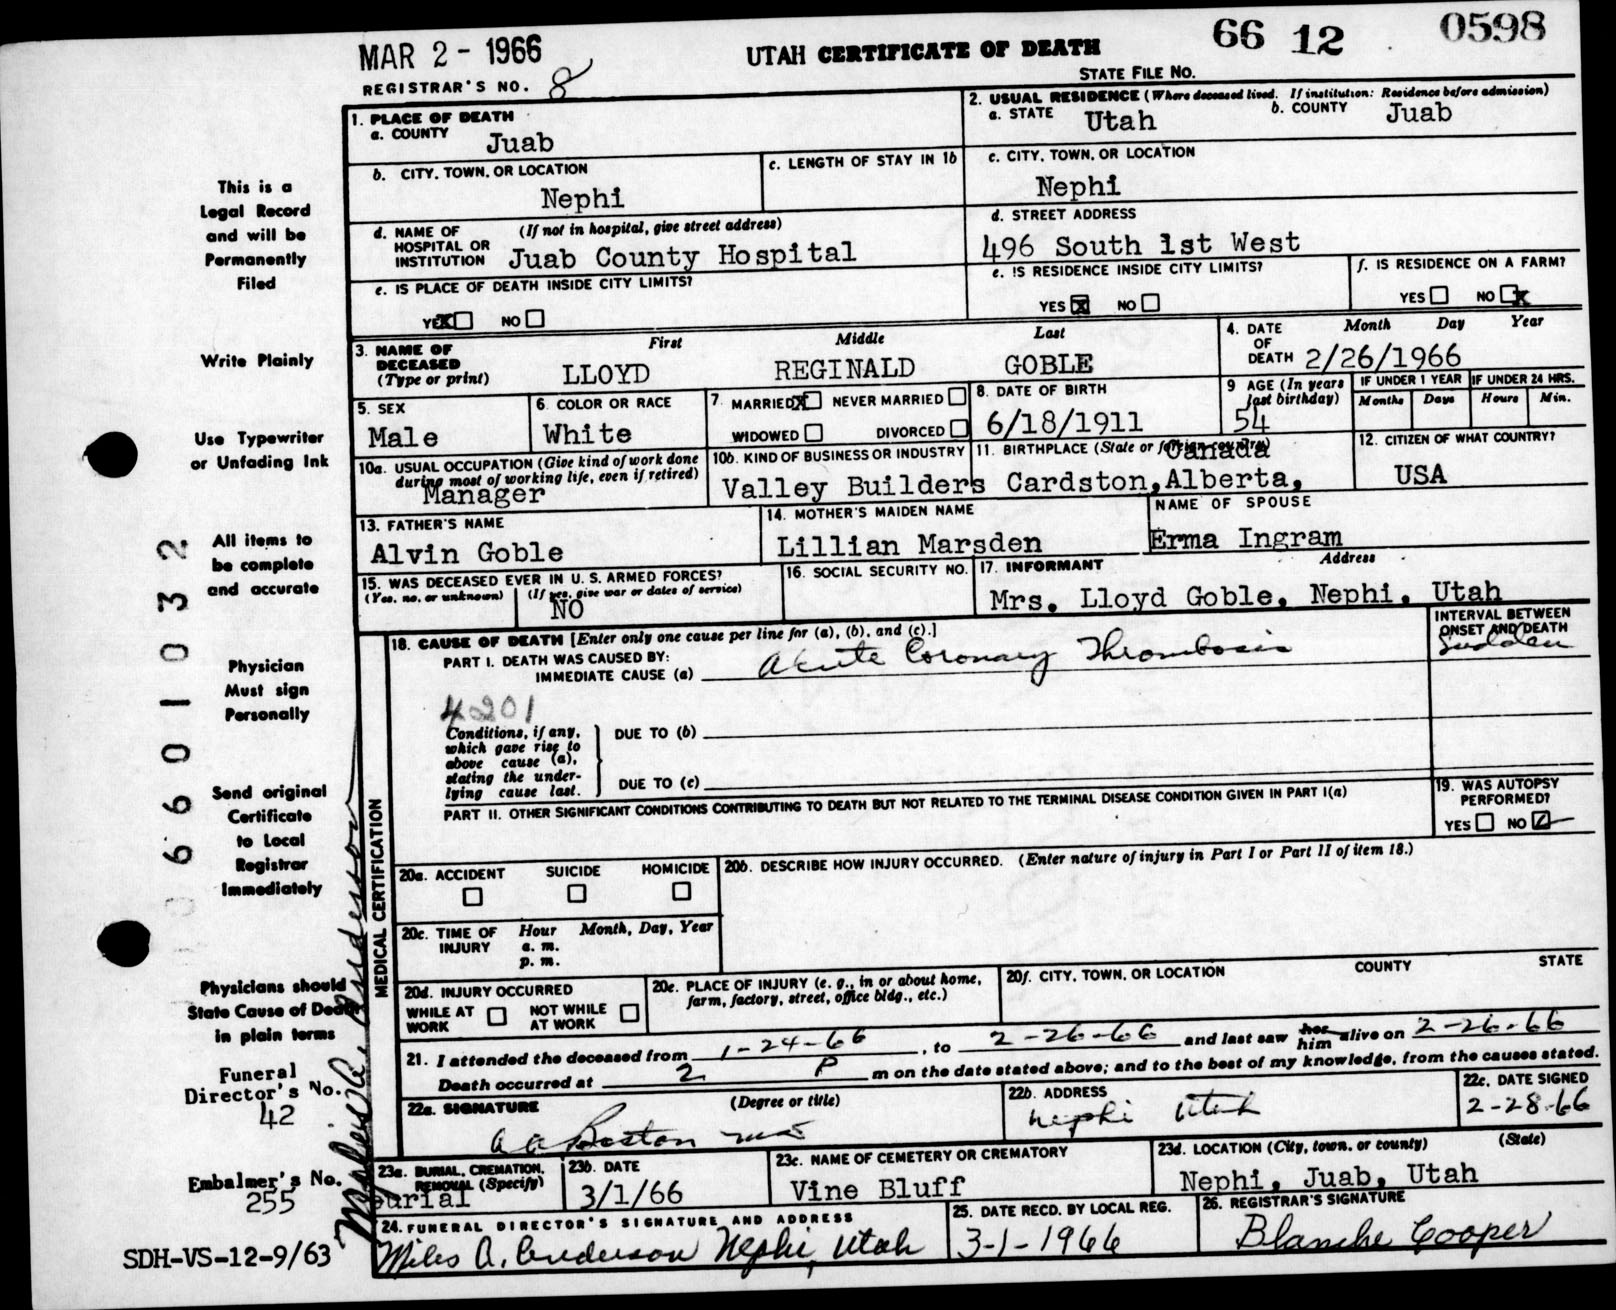 MAR 2 - 1966
UTAH CERTIFICATE OF DEATH
66 12 0598
STATE FILE NO.
REGISTRAR'S NO. 8
1. PLACE OF DEATH
a. COUNTY
Juab
2. USUAL RESIDENCE (Where deceased lived. If institution: Residence before admission)
a. STATE Utah b. COUNTY Juab
b. CITY, TOWN, OR LOCATION
Nephi
c. LENGTH OF STAY IN 1b
c. CITY, TOWN, OR LOCATION
Nephi
d. NAME OF HOSPITAL OR INSTITUTION (If not in hospital, give street address)
Juab County Hospital
d. STREET ADDRESS
496 South 1st West
e. IS PLACE OF DEATH INSIDE CITY LIMITS?
YES X NO
e. IS RESIDENCE INSIDE CITY LIMITS?
YES X NO
f. IS RESIDENCE ON A FARM?
YES NO X
3. NAME OF DECEASED (Type or print)
First Middle Last
LLOYD REGINALD GOBLE
4. DATE OF DEATH Month Day Year
2/26/1966
5. SEX
Male
6. COLOR OR RACE
White
7. MARRIED X NEVER MARRIED
WIDOWED DIVORCED
8. DATE OF BIRTH
6/18/1911
9 AGE (In years last birthday)
54
IF UNDER 1 YEAR IF UNDER 24 HRS.
Months Days Hours Min.
10a. USUAL OCCUPATION (Give kind of work done during most of working life, even if retired)
Manager
10b. KIND OF BUSINESS OR INDUSTRY
Valley Builders
11. BIRTHPLACE (State or foreign country)
Canada
Cardston, Alberta,
12. CITIZEN OF WHAT COUNTRY?
USA
13. FATHER'S NAME
Alvin Goble
14. MOTHER'S MAIDEN NAME
Lillian Marsden
NAME OF SPOUSE
Erma Ingram
15. WAS DECEASED EVER IN U. S. ARMED FORCES?
(Yes, no, or unknown) (If yes, give war or dates of service)
NO
16. SOCIAL SECURITY NO.
17. INFORMANT Address
Mrs. Lloyd Goble, Nephi, Utah
18. CAUSE OF DEATH [Enter only one cause per line for (a), (b), and (c).]
INTERVAL BETWEEN ONSET AND DEATH
Sudden
PART I. DEATH WAS CAUSED BY:
IMMEDIATE CAUSE (a) Acute Coronary Thrombosis
4201
Conditions, if any, which gave rise to above cause (a), stating the underlying cause last.
DUE TO (b)
DUE TO (c)
PART II. OTHER SIGNIFICANT CONDITIONS CONTRIBUTING TO DEATH BUT NOT RELATED TO THE TERMINAL DISEASE CONDITION GIVEN IN PART I(a)
19. WAS AUTOPSY PERFORMED?
YES NO
20a. ACCIDENT SUICIDE HOMICIDE
20b. DESCRIBE HOW INJURY OCCURRED. (Enter nature of injury in Part I or Part II of item 18.)
20c. TIME OF INJURY Hour Month, Day, Year
a. m.
p. m.
20d. INJURY OCCURRED
WHILE AT WORK NOT WHILE AT WORK
20e. PLACE OF INJURY (e. g., in or about home, farm, factory, street, office bldg., etc.)
20f. CITY, TOWN, OR LOCATION COUNTY STATE
21. I attended the deceased from 1-24-66, to 2-26-66 and last saw her him alive on 2-26-66
Death occurred at 2 P m on the date stated above; and to the best of my knowledge, from the causes stated.
22a. SIGNATURE (Degree or title)
22b. ADDRESS
Nephi Utah
22c. DATE SIGNED
2-28-66
23a. BURIAL, CREMATION, REMOVAL (Specify)
Burial
23b. DATE
3/1/66
23c. NAME OF CEMETERY OR CREMATORY
Vine Bluff
23d. LOCATION (City, town, or county) (State)
Nephi, Juab, Utah
24. FUNERAL DIRECTOR'S SIGNATURE AND ADDRESS
Miles A. Anderson Nephi, Utah
25. DATE RECD. BY LOCAL REG.
3-1-1966
26. REGISTRAR'S SIGNATURE
Blanche Cooper
This is a
Legal Record
and will be
Permanently
Filed
Write Plainly
Use Typewriter
or Unfading Ink
All items to
be complete
and accurate
Physician
Must sign
Personally
Send original
Certificate
to Local
Registrar
Immediately
Physicians should
State Cause of Death
in plain terms
Funeral
Director's No.
42
Embalmer's No.
255
SDH-VS-12-9/63
MEDICAL CERTIFICATION